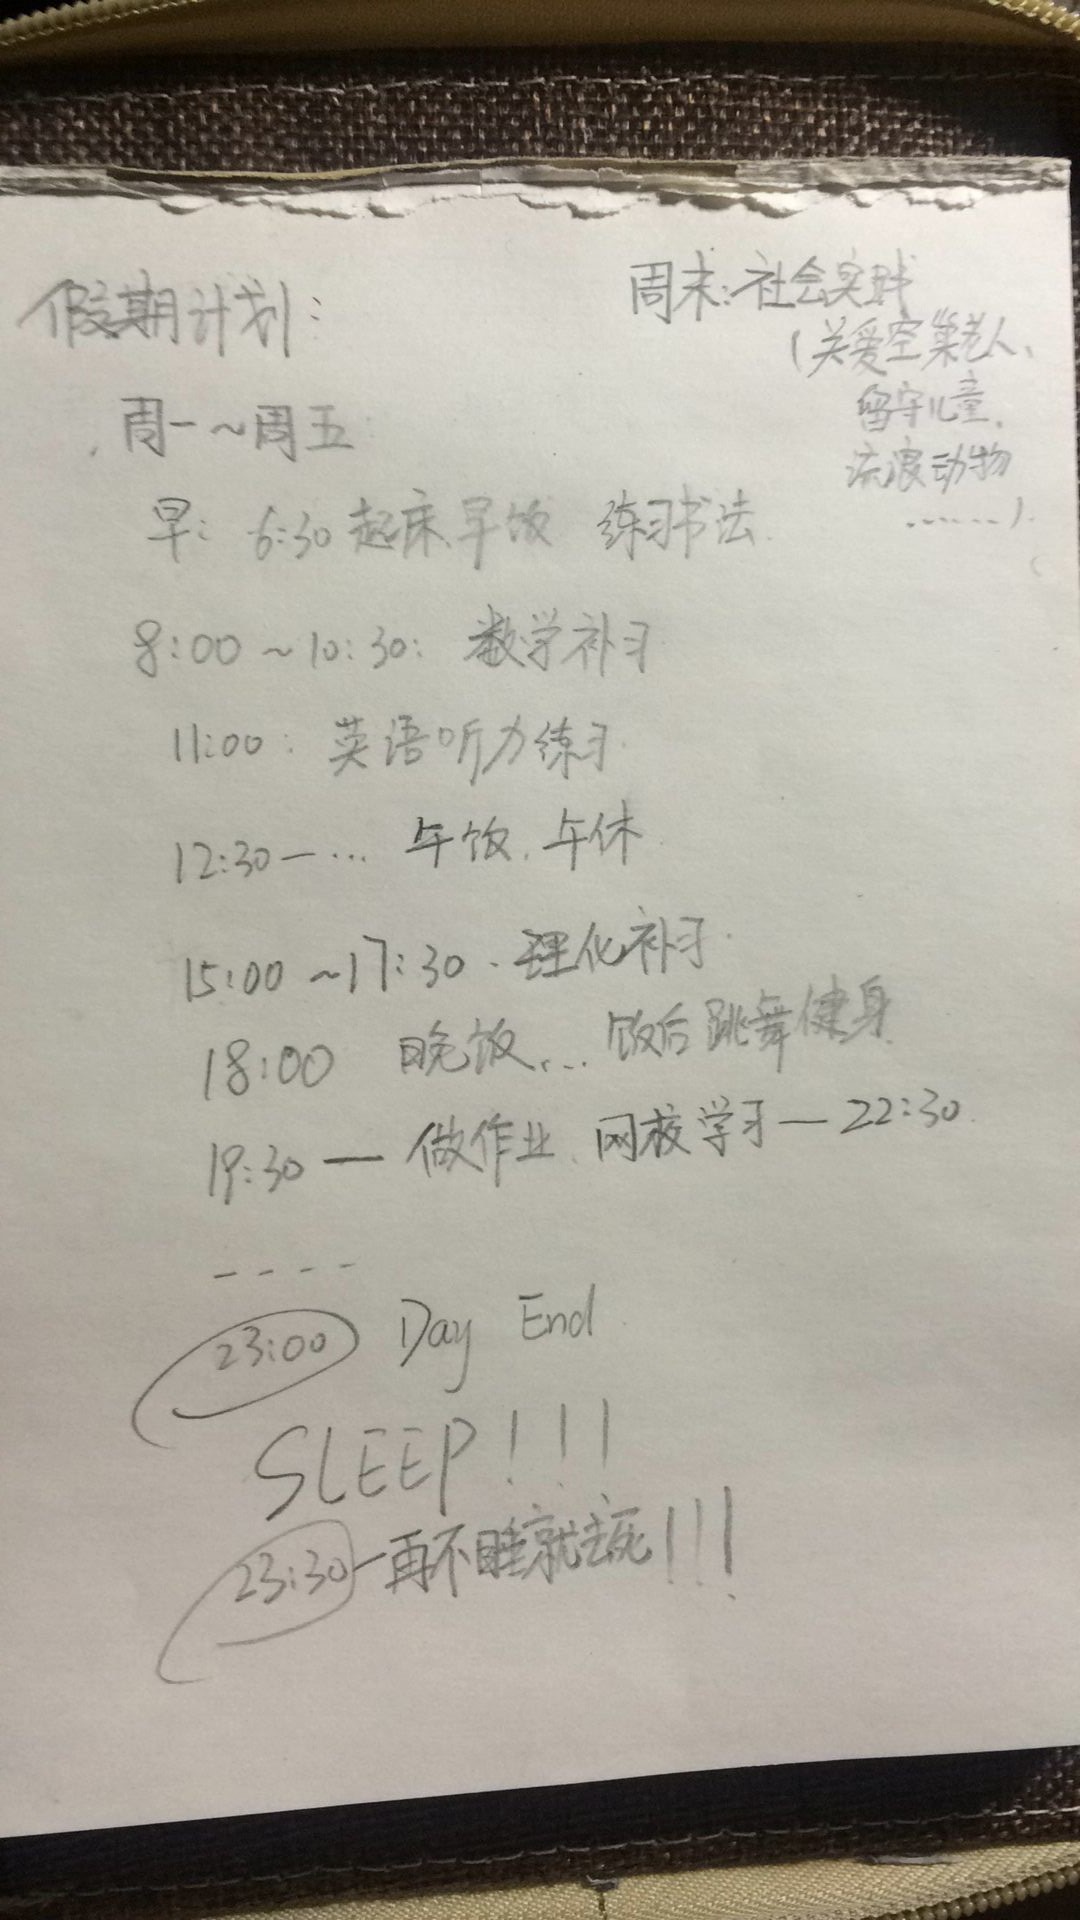 假期计划:
周一~周五
早: 6:30 起床、早饭 练习书法.
8:00 ~10:30: 数学补习
11:00: 英语听力练习.
12:30—… 午饭, 午休.
15:00 ~17:30. 理化补习.
18:00 晚饭... 饭后跳舞健身.
19:30 — 做作业、网校学习—22:30.
----
23:00 Day End
SLEEP!!!
23:30—再不睡就去死!!!
周末: 社会实践
(关爱空巢老人、
留守儿童.
流浪动物
.......).